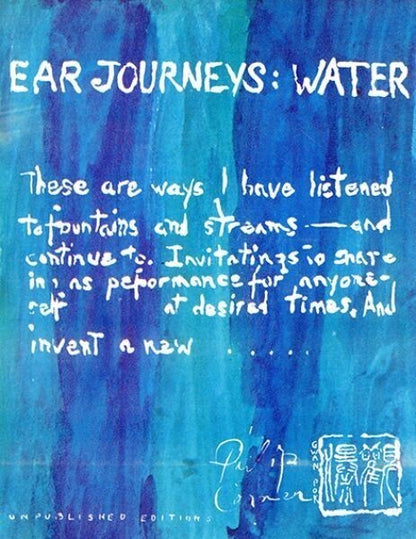 EAR JOURNEYS: WATER
These are ways I have listened
to fountains and streams — and
continue to. Invitatings to share
in; as peformance for anyone-
self at desired times. And
invent a new . . . . . .
Philip
Corner
UNPUBLISHED EDITIONS